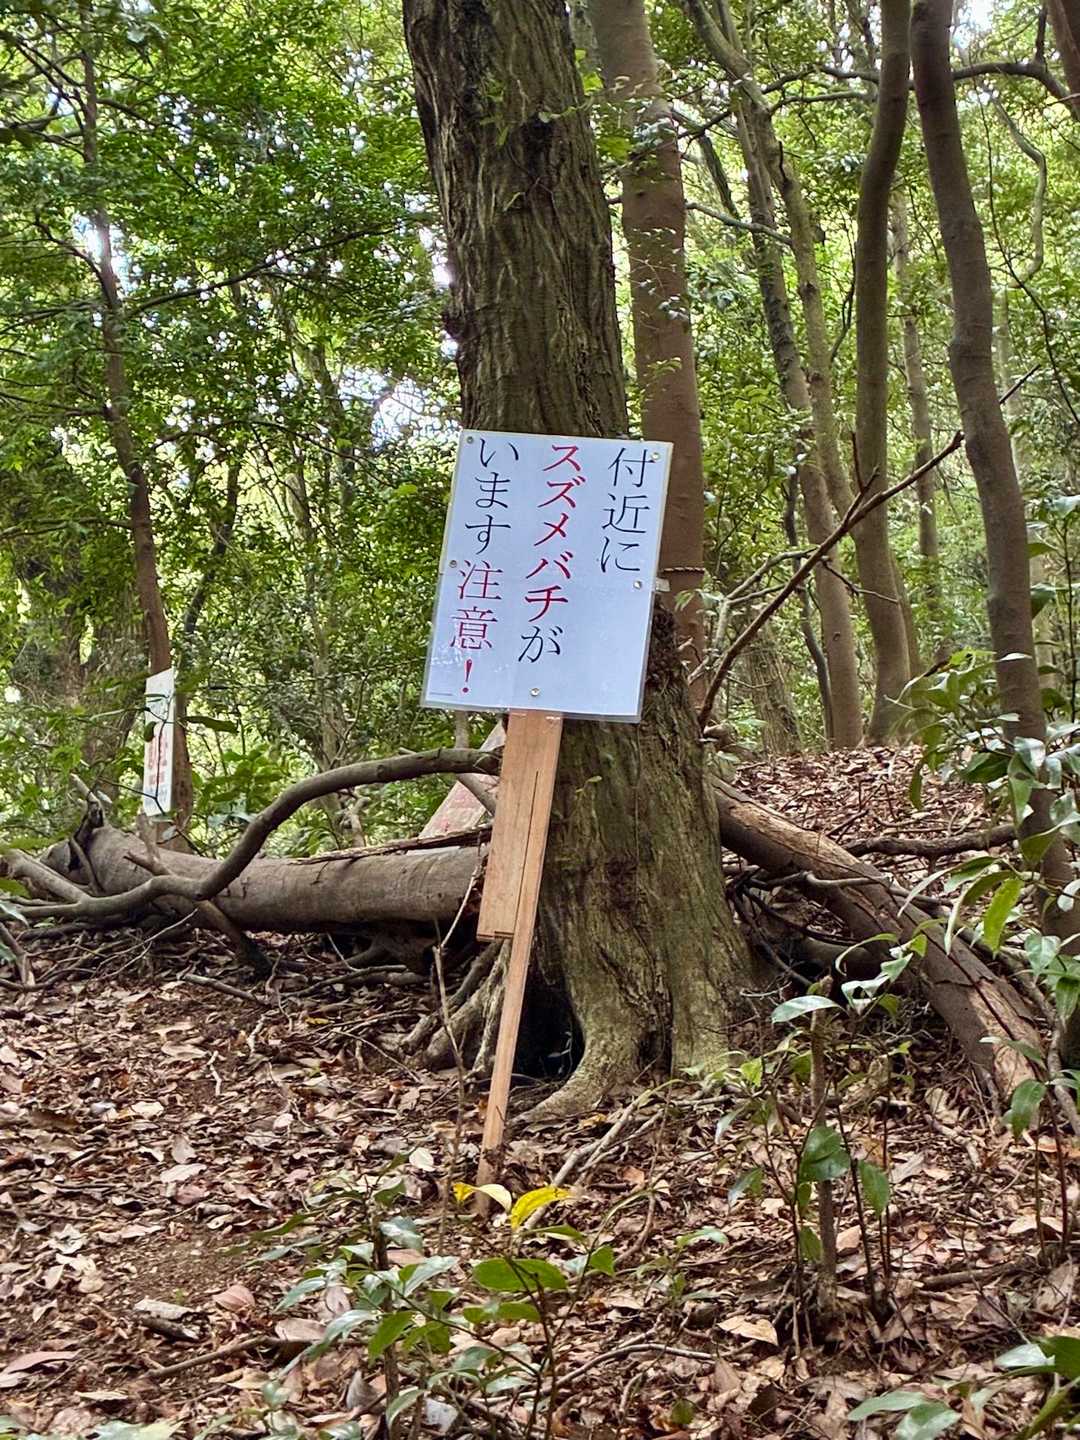 付近に
スズメバチが
います注意！